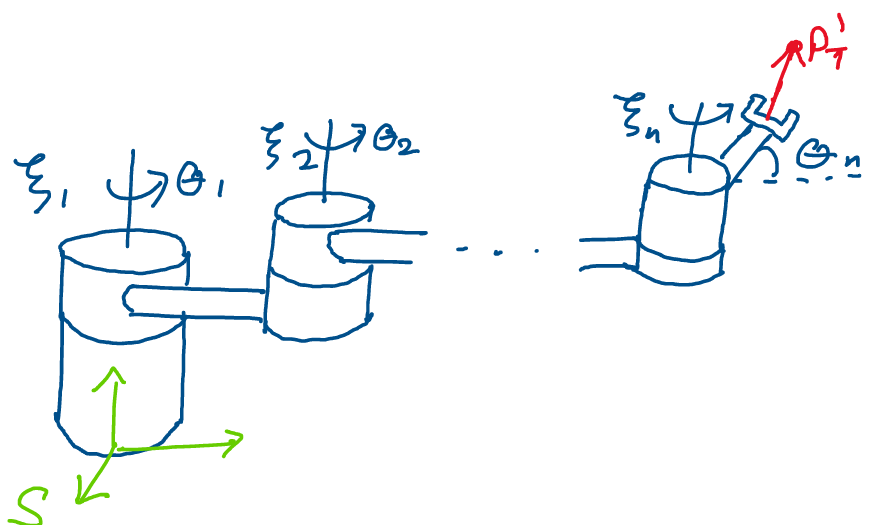 ξ₁ θ₁
ξ₂ θ₂
. . .
ξₙ θₙ
P'_T
S